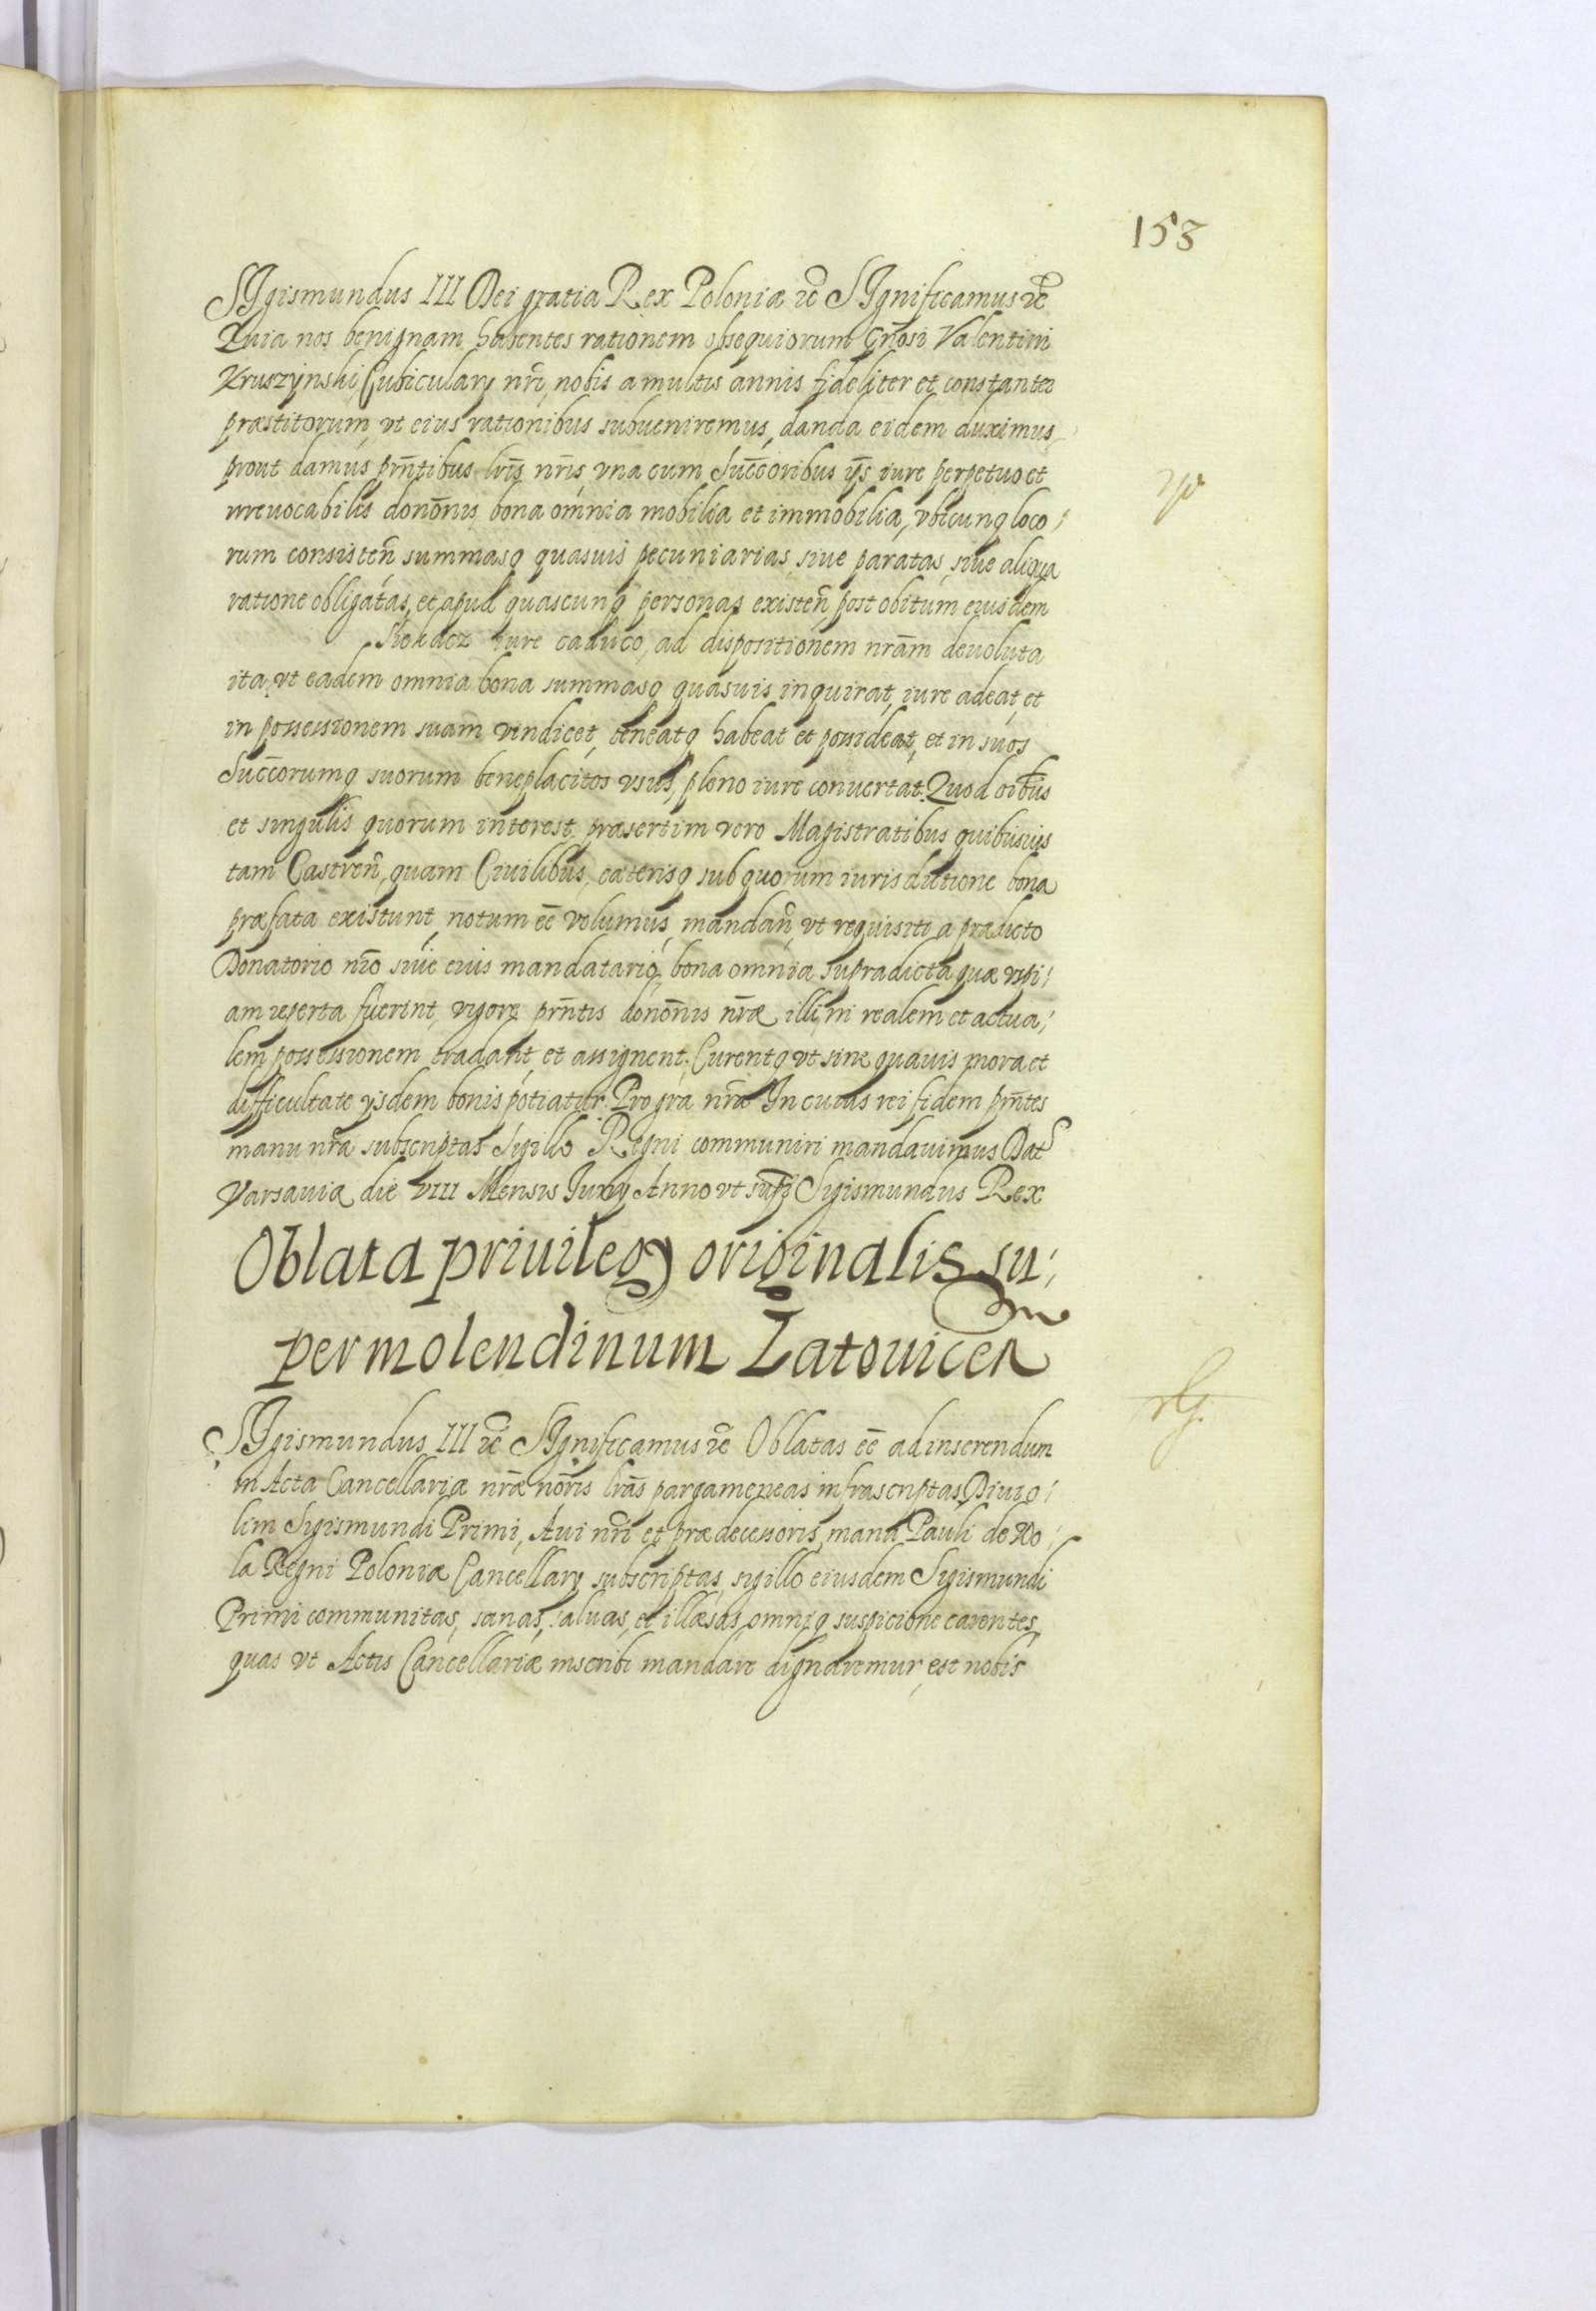 153
SIgismundus III Dei gratia Rex Poloniæ &c̃ SIgnificamus &c̃
Quia nos benignam habentes rationem obsequiorum Gñosi Valentini
Kruszÿnski Cubiculary nr̃i, nobis a multis annis fideliter et constanter
præstitorum, vt eius rationibus subueniremus, danda eidem duximus
prout damus pñtibus lr̃is nr̃is, vna cum Succ̃oribus ijs iure perpetuo et
irreuocabilis donõnis bona omnia mobilia et immobilia, vbicunq loco/
rum consisteñ summasq quasuis pecuniarias, siue paratas, siue aliqua
ratione obligatas, et apud quascunq personas existeñ, post obitum eiusdem
iure caduco, ad dispositionem nrãm deuoluta
ita, vt eadem omnia bona summasq quasuis inquirat, iure adeat, et
in possessionem suam vendicet, teneatq habeat et possideat, et in suos
Succorumq suorum beneplacitos vsus, pleno iure conuertat. Quod oĩbus
et singulis quorum interest, præsertim vero Magistratibus quibusuis
tam Castreñ, quam Ciuilibus, cæterisq sub quorum iurisdictione bona
præfata existunt, notum eẽ volumus, mandañ, vt requisiti a prædicto
Donatorio nr̃o siue eius mandatario, bona omnia supradicta quæ vspi/
am reperta fuerint, vigore pñtis donõnis nr̃æ illi in realem et actua/
lem possessionem tradant, et assignent. Curentq vt sine quauis mora et
difficultate ysdem bonis potiatur. Pro grã nr̃a In cuius rei fidem pñtes
manu nr̃a subscriptas Sigillo Regni communiri mandauimus Dat
Varsauiæ die VIII Mensis July Anno vt supr̃ Sigismundus Rex
Oblata priuilegy originalis su/
per molendinum Łatouiceñ
SIgismundus III &c̃ SIgnificamus &c̃ Oblatas eẽ ad inserendum
in Acta Cancellariæ nr̃æ nõris lrãs pargameneas infrascriptas Diui o/
lim Sigismundi Primi, Aui nr̃i et prædecessoris, manu Pauli de Wo/
la Regni Poloniæ Cancellary subscriptas, sigillo eiusdem Sigismundi
Primi communitas, sanas, saluas, et illæsas omniq suspicione carentes,
quas vt Actis Cancellariæ inscribi mandare dignaremur, est nobis